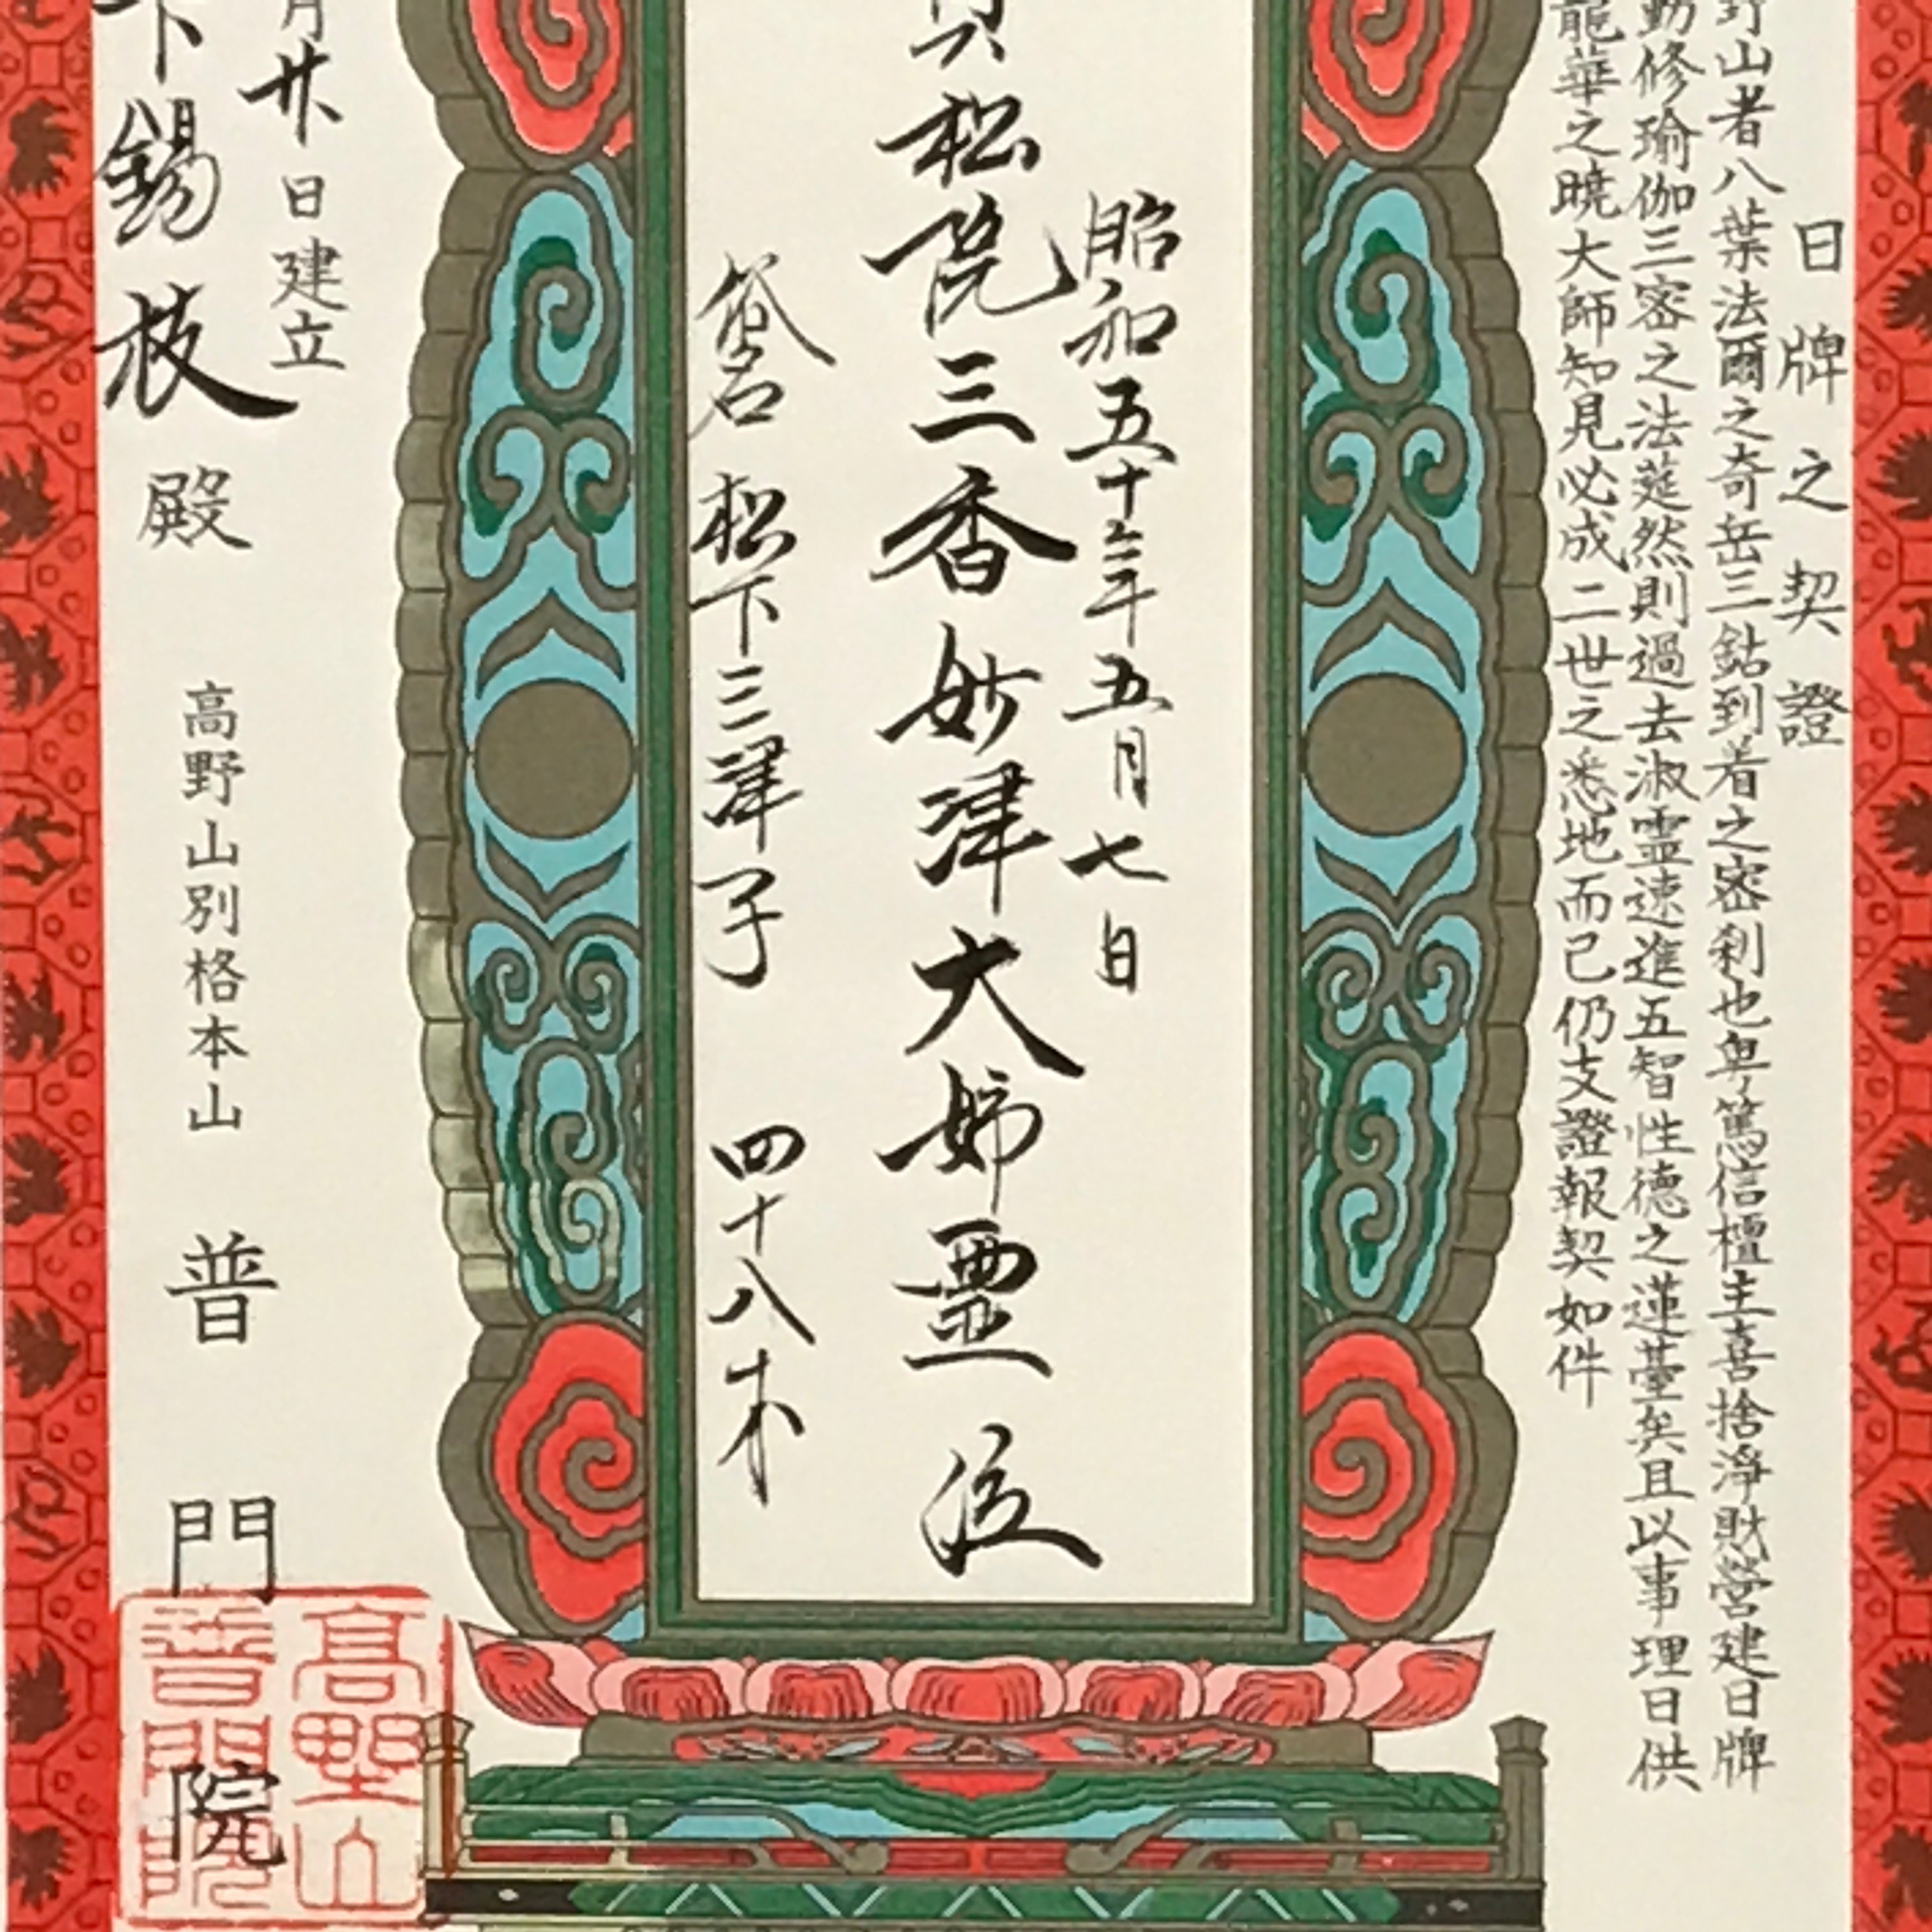 日牌之契證
野山者八葉法爾之奇岳三鈷到着之密刹也卑篤信檀主喜捨淨財營建日牌
勤修瑜伽三密之法莚然則過去淑靈速進五智性德之蓮臺矣且以事理日供
龍華之曉大師知見必成二世之悉地而已仍支證報契如件
昭和五十六年五月七日
松院三香妙津大姉霊位
俗名 松下三津子 四十八才
月廿日建立
下錫枝殿
高野山別格本山 普門院
高野山
普門院